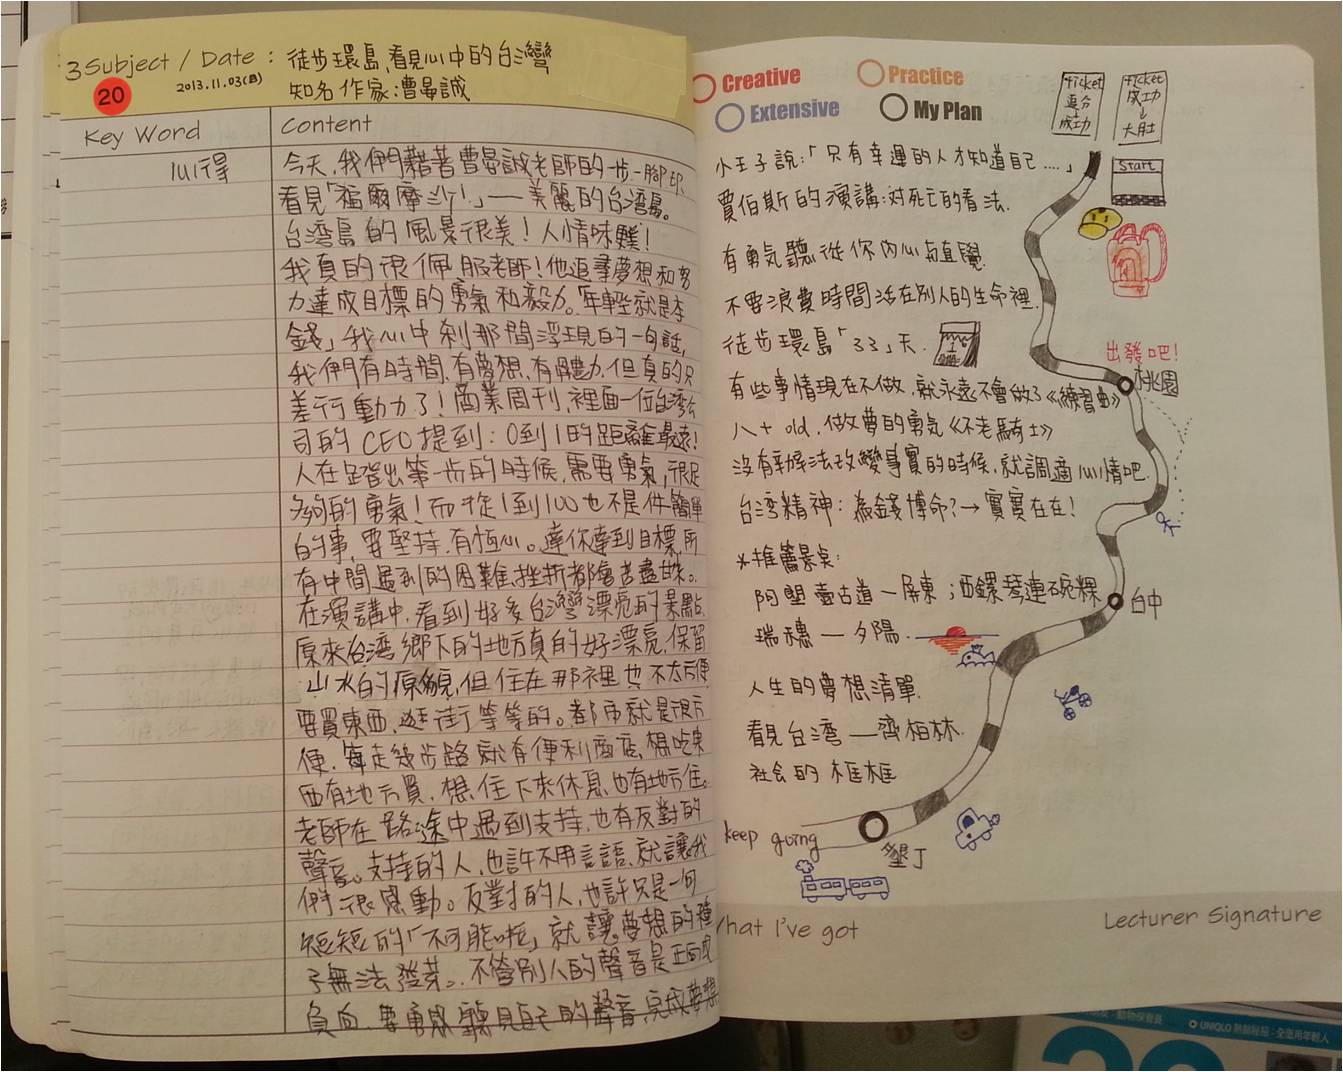 3 Subject / Date : 徒步環島,看見心中的台灣
20
2013.11.03(日) 知名作家:曹晏誠
Key Word
Content
心得
今天,我們藉著曹晏誠老師的一步一腳印、
看見「福爾摩沙!」——美麗的台湾島。
台湾島的風景很美!人情味雞!
我真的很佩服老師!他追尋夢想和努
力達成目標的勇氣和毅力。「年輕就是本
錢」我心中刹那間浮現的一句話,
我們有時間,有夢想,有體力,但真的只
差行動力了!商業周刊,裡面一位台湾公
司的CEO提到:0到1的距離最遠!
人在踏出第一步的時候,需要勇氣,很足
夠的勇氣!而從1到100也不是件簡單
的事,要堅持,有恒心。達你達到目標,所
有中間遇到的困難,挫折都會苦盡甘來。
在演講中,看到好多台灣漂亮的景點,
原來台湾鄉下的地方真的好漂亮,保留
山水的原貌,但住在那裡也不太方便
要買東西,逛街等等的。都市就是很方
便,每走幾步路就有便利商店,想吃東
西有地方買,想住下來休息,也有地方住。
老師在路途中遇到支持,也有反對的
聲音。支持的人,也許不用言語,就讓我
們很感動。反對的人,也許只是一句
短短的「不可能啦」就讓夢想的種
子無法發芽。不管別人的聲音是正面或
負面,要勇敢聽見自己的聲音,完成夢想
Creative
Practice
Extensive
My Plan
Ticket 追分 ↓ 成功
Ticket 成功 ↓ 大肚
Start
小王子說:「只有幸運的人才知道自己....」
賈伯斯的演講:対死亡的看法.
有勇氣聽從你内心与直覺.
不要浪費時間活在別人的生命裡.
徒步環島「33」天.
出發吧!
桃園
有些事情現在不做,就永遠不會做了《練習曲》
八十 old,做夢的勇氣《不老騎士》
沒有辦法改變事實的時候,就調適心情吧.
台湾精神:為錢博命?→實實在在!
*推薦景点:
阿塱壹古道—屏東;西螺琴連碗粿
台中
瑞穗—夕陽.
人生的夢想清單.
看見台湾—齊柏林.
社会的框框
keep going
墾丁
What I've got
Lecturer Signature
UNIQLO 熱銷秘招:全進用年輕人